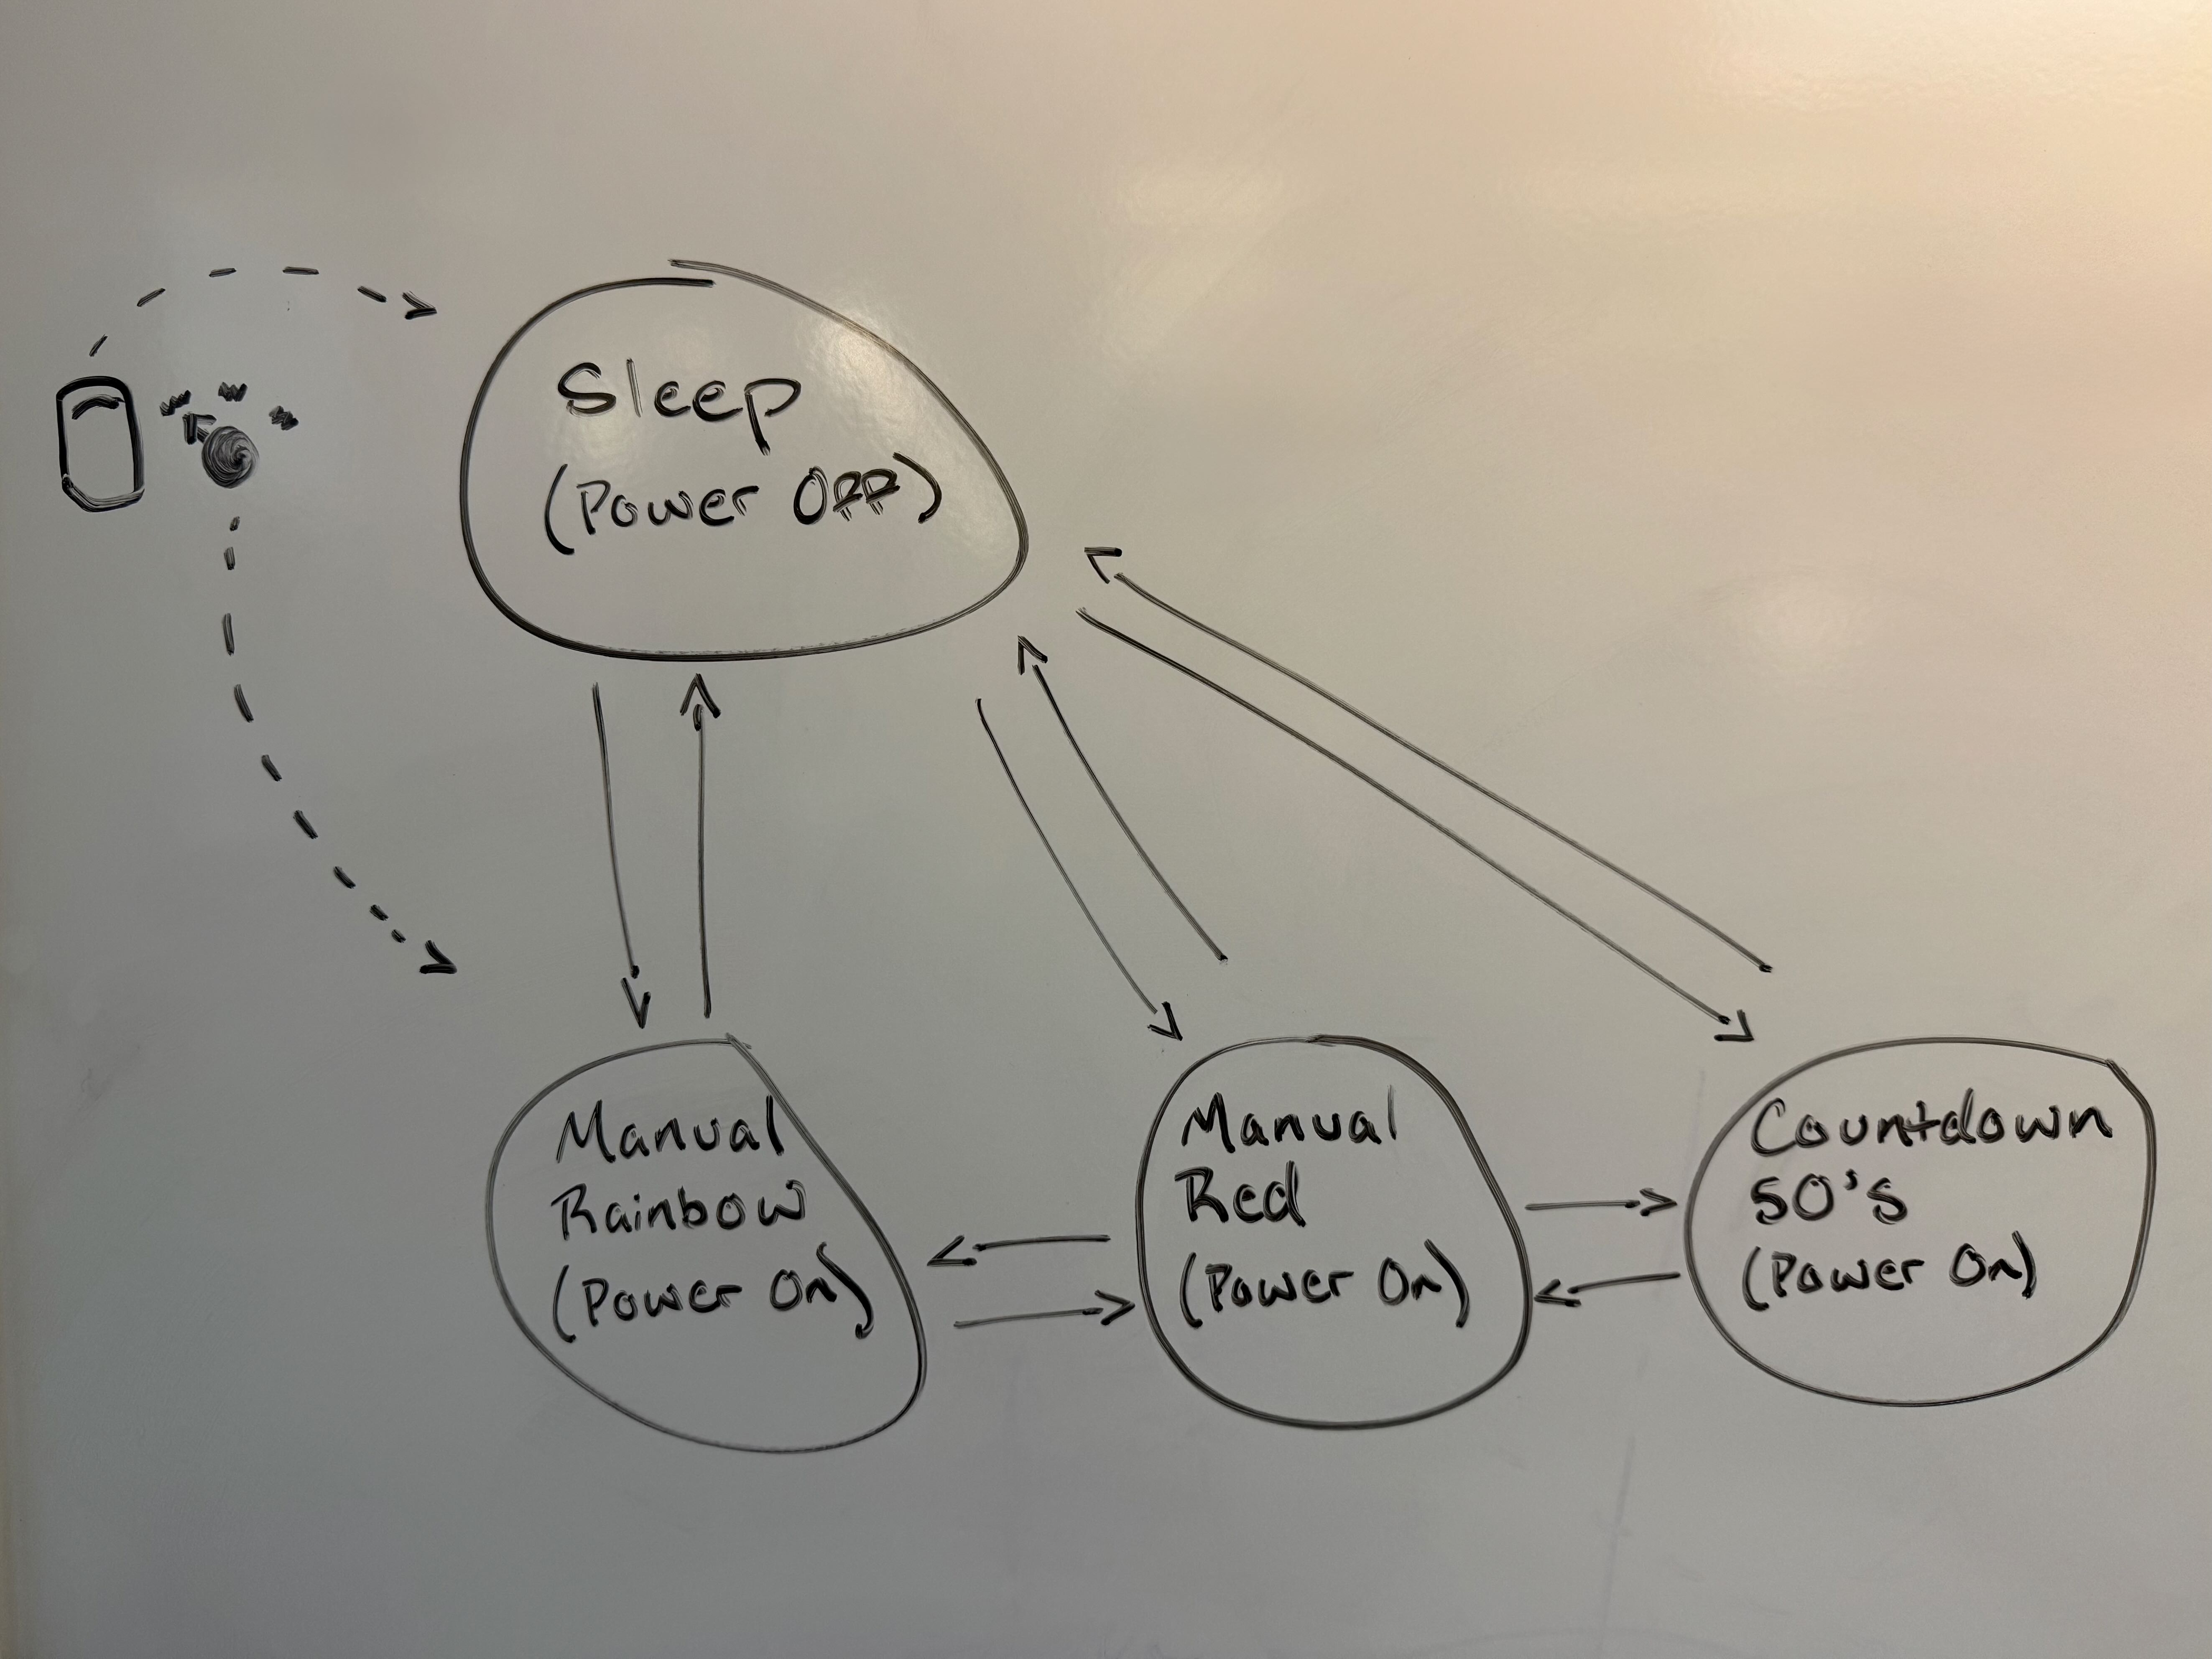 Sleep
(Power Off)
Manual
Rainbow
(Power On)
Manual
Red
(Power On)
Countdown
50's
(Power On)